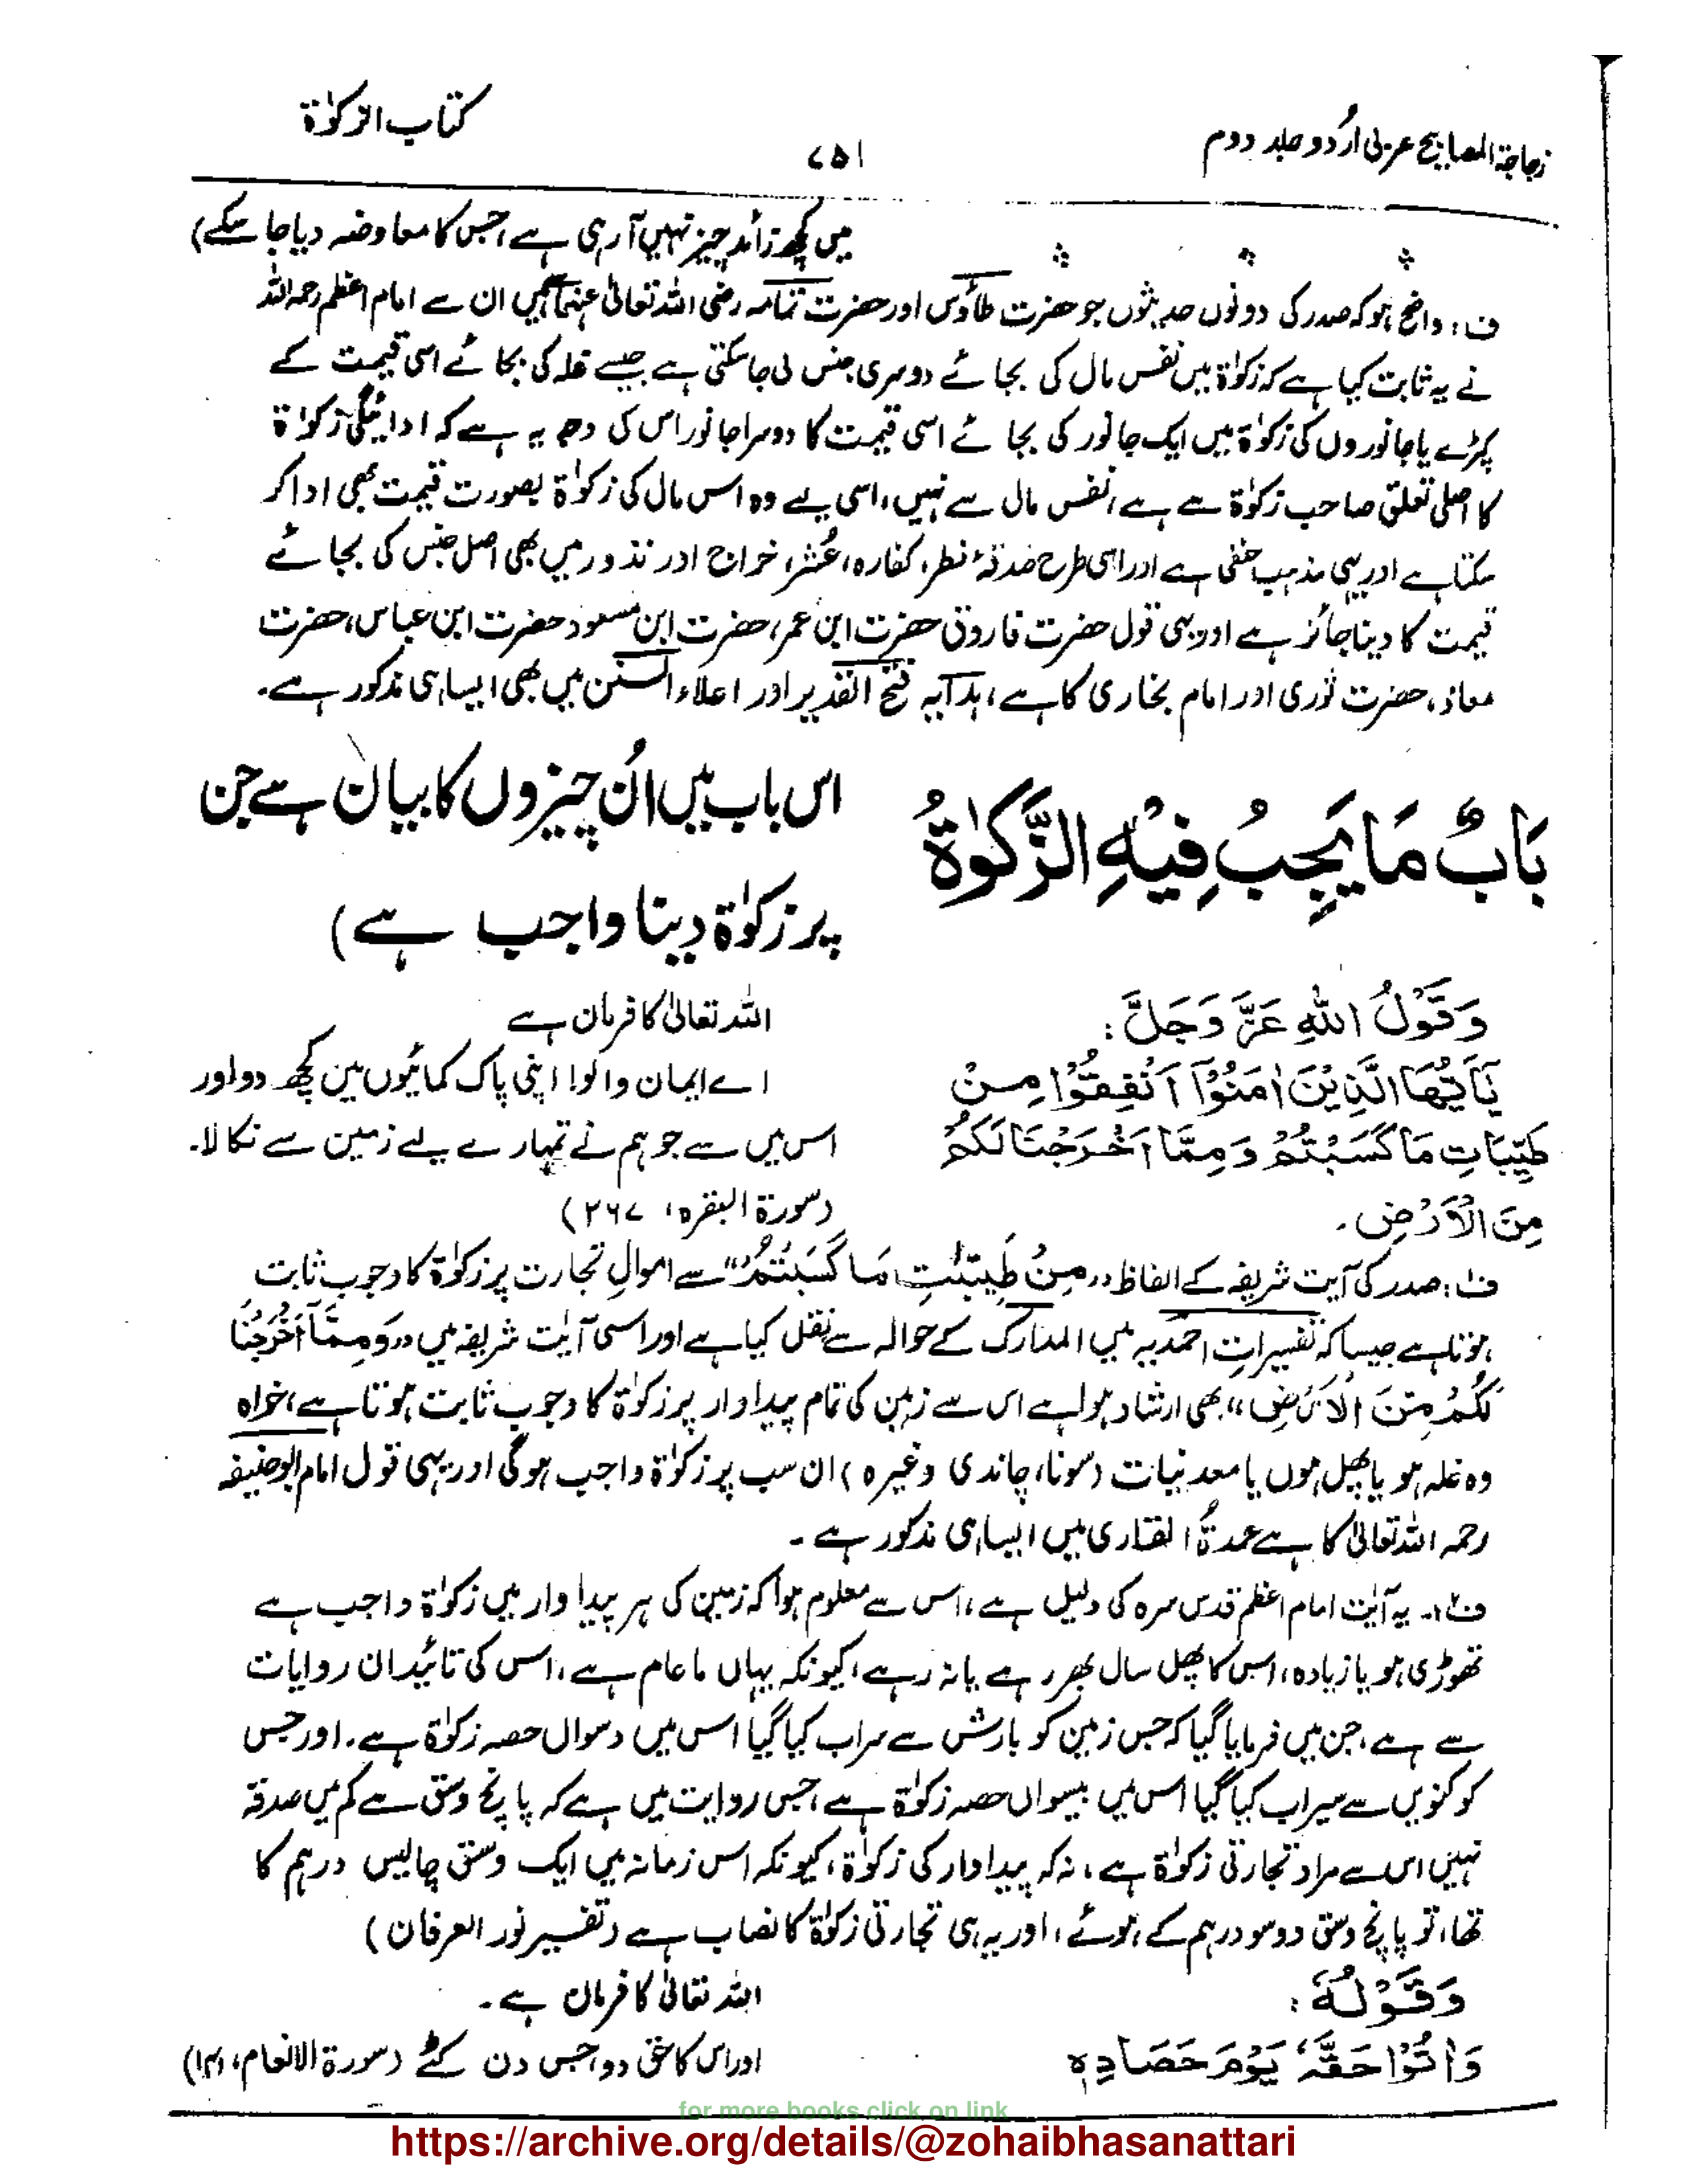 زجاجۃ المصابیح عربی اُردو جلد دوم
۷۵۱
کتاب الزکوٰۃ
میں کچھ زائد چیز نہیں آرہی ہے، جس کا معاوضہ دیا جا سکے)
ف: واضح ہو کہ صدر کی دونوں حدیثوں جو حضرت طاؤس اور حضرت ثمامہ رضی اللہ تعالیٰ عنہما ہیں ان سے امام اعظم رحمہ اللہ
نے یہ ثابت کیا ہے کہ زکوٰۃ میں نفس مال کی بجائے دوسری جنس لی جا سکتی ہے جیسے غلہ کی بجائے اسی قیمت کے
کپڑے یا جانوروں کی زکوٰۃ میں ایک جانور کی بجائے اسی قیمت کا دوسرا جانور اس کی وجہ یہ ہے کہ ادائیگی زکوٰۃ
کا اصلی تعلق صاحب زکوٰۃ سے ہے، نفس مال سے نہیں، اسی لیے وہ اس مال کی زکوٰۃ بصورت قیمت بھی ادا کر
سکتا ہے اور یہی مذہب حنفی ہے اور اسی طرح صدقۂ فطر، کفارہ، عُشر، خراج اور نذور میں بھی اصل جنس کی بجائے
قیمت کا دینا جائز ہے اور یہی قول حضرت فاروق حضرت ابن عمر، حضرت ابن مسعود حضرت ابن عباس، حضرت
معاذ، حضرت ثوری اور امام بخاری کا ہے، ہدایہ فتح القدیر اور اعلاء السنن میں بھی ایسا ہی مذکور ہے۔
بَابٌ مَا يَجِبُ فِيْهِ الزَّكٰوةُ
اس باب میں اُن چیزوں کا بیان ہے جن
پر زکوٰۃ دینا واجب ہے)
وَقَوْلُ اللهِ عَزَّ وَجَلَّ:
اللہ تعالیٰ کا فرمان ہے
يٰٓاَيُّهَا الَّذِيْنَ اٰمَنُوْٓا اَنْفِقُوْا مِنْ
اے ایمان والو! اپنی پاک کمائیوں میں کچھ دو اور
طَيِّبَاتِ مَا كَسَبْتُمْ وَمِمَّا اَخْرَجْنَا لَكُمْ
اس میں سے جو ہم نے تمہارے لیے زمین سے نکالا۔
مِنَ الْاَرْضِ۔
(سورۃ البقرہ، ۲۶۷)
ف۱: صدر کی آیت شریفہ کے الفاظ "مِنْ طَيِّبٰتِ مَا كَسَبْتُمْ" سے اموالِ تجارت پر زکوٰۃ کا وجوب ثابت
ہوتا ہے جیسا کہ تفسیراتِ احمدیہ میں المدارک کے حوالہ سے نقل کیا ہے اور اسی آیت شریفہ میں "وَمِمَّآ اَخْرَجْنَا
لَكُمْ مِّنَ الْاَرْضِ" بھی ارشاد ہوا ہے اس سے زمین کی تمام پیداوار پر زکوٰۃ کا وجوب ثابت ہوتا ہے، خواہ
وہ غلہ ہو یا پھل ہوں یا معدنیات (سونا، چاندی وغیرہ) ان سب پر زکوٰۃ واجب ہوگی اور یہی قول امام ابوحنیفہ
رحمہ اللہ تعالیٰ کا ہے عمدۃُ القاری میں ایسا ہی مذکور ہے۔
ف۲:۔ یہ آیت امام اعظم قدس سرہ کی دلیل ہے، اس سے معلوم ہوا کہ زمین کی ہر پیداوار میں زکوٰۃ واجب ہے
تھوڑی ہو یا زیادہ، اس کا پھل سال بھر رہے یا نہ رہے، کیونکہ یہاں ما عام ہے، اس کی تائید ان روایات
سے ہے، جن میں فرمایا گیا کہ جس زمین کو بارش سے سراب کیا گیا اس میں دسواں حصہ زکوٰۃ ہے۔ اور جس
کو کنویں سے سیراب کیا گیا اس میں بیسواں حصہ زکوٰۃ ہے، جس روایت میں ہے کہ پانچ وسق سے کم میں صدقہ
نہیں اس سے مراد تجارتی زکوٰۃ ہے، نہ کہ پیداوار کی زکوٰۃ، کیونکہ اس زمانہ میں ایک وسق چالیس درہم کا
تھا، تو پانچ وسق دو سو درہم کے ہوئے، اور یہ ہی تجارتی زکوٰۃ کا نصاب ہے (تفسیر نور العرفان)
وَقَوْلُهٗ:
اللہ تعالیٰ کا فرمان ہے۔
وَاٰتُوْا حَقَّهٗ يَوْمَ حَصَادِهٖ
اور اس کا حق دو، جس دن کٹے (سورۃ الانعام، ۱۴۱)
for more books click on link
https://archive.org/details/@zohaibhasanattari